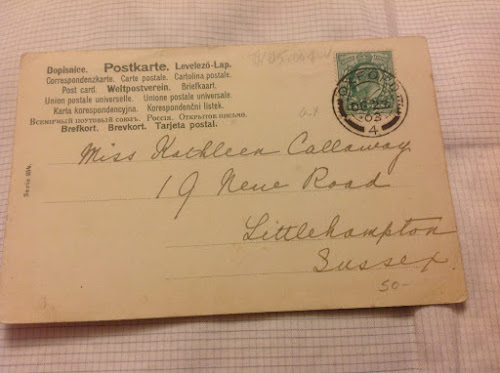 Dopisnice. Postkarte. Levelező-Lap.
Correspondenzkarte. Carte postale. Cartolina postale.
Post card. Weltpostverein. Briefkaart.
Union postale universelle. Unione postale universale.
Karta korespondencyjna. Korespondenční lístek.
Всемирный почтовый союзъ. Россія. Открытое письмо.
Brefkort. Brevkort. Tarjeta postal.
OXFORD
03
4
Miss Kathleen Callaway
19 Neue Road
Littlehampton
Sussex.
50-